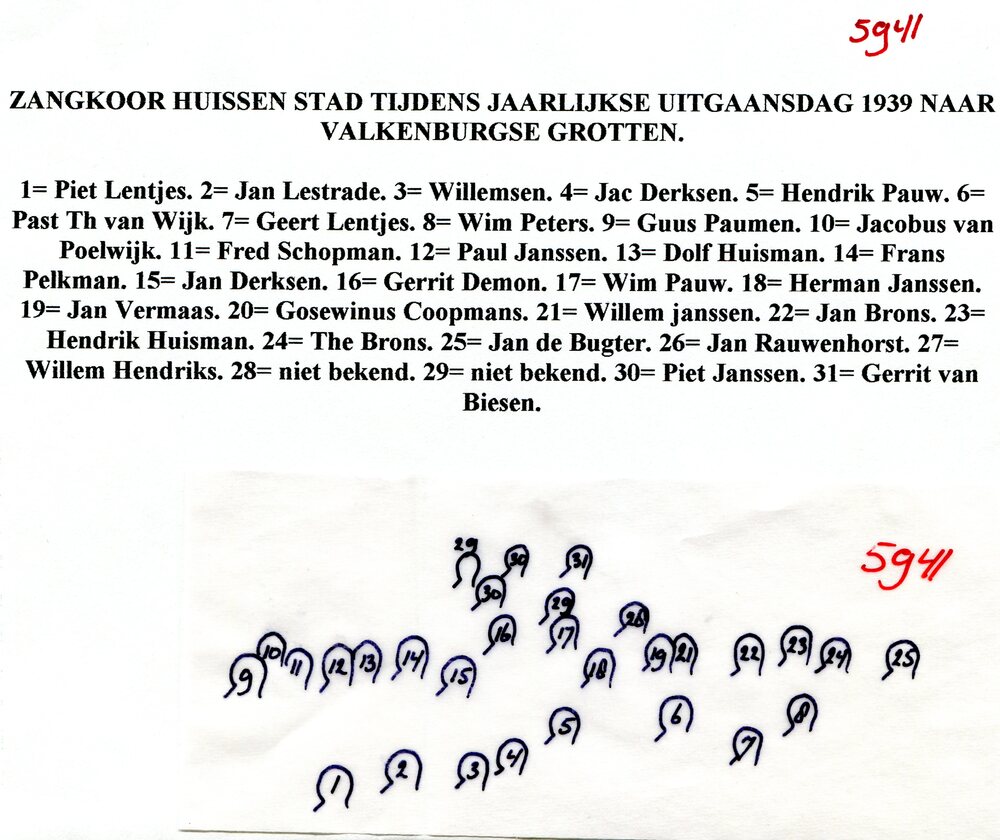 5941
ZANGKOOR HUISSEN STAD TIJDENS JAARLIJKSE UITGAANSDAG 1939 NAAR
VALKENBURGSE GROTTEN.
1= Piet Lentjes. 2= Jan Lestrade. 3= Willemsen. 4= Jac Derksen. 5= Hendrik Pauw. 6=
Past Th van Wijk. 7= Geert Lentjes. 8= Wim Peters. 9= Guus Paumen. 10= Jacobus van
Poelwijk. 11= Fred Schopman. 12= Paul Janssen. 13= Dolf Huisman. 14= Frans
Pelkman. 15= Jan Derksen. 16= Gerrit Demon. 17= Wim Pauw. 18= Herman Janssen.
19= Jan Vermaas. 20= Gosewinus Coopmans. 21= Willem janssen. 22= Jan Brons. 23=
Hendrik Huisman. 24= The Brons. 25= Jan de Bugter. 26= Jan Rauwenhorst. 27=
Willem Hendriks. 28= niet bekend. 29= niet bekend. 30= Piet Janssen. 31= Gerrit van
Biesen.
5941
29 30 31
30 29
16 17 26
9 10 11 12 13 14 15 18 19 21 22 23 24 25
5 6 7 8
1 2 3 4